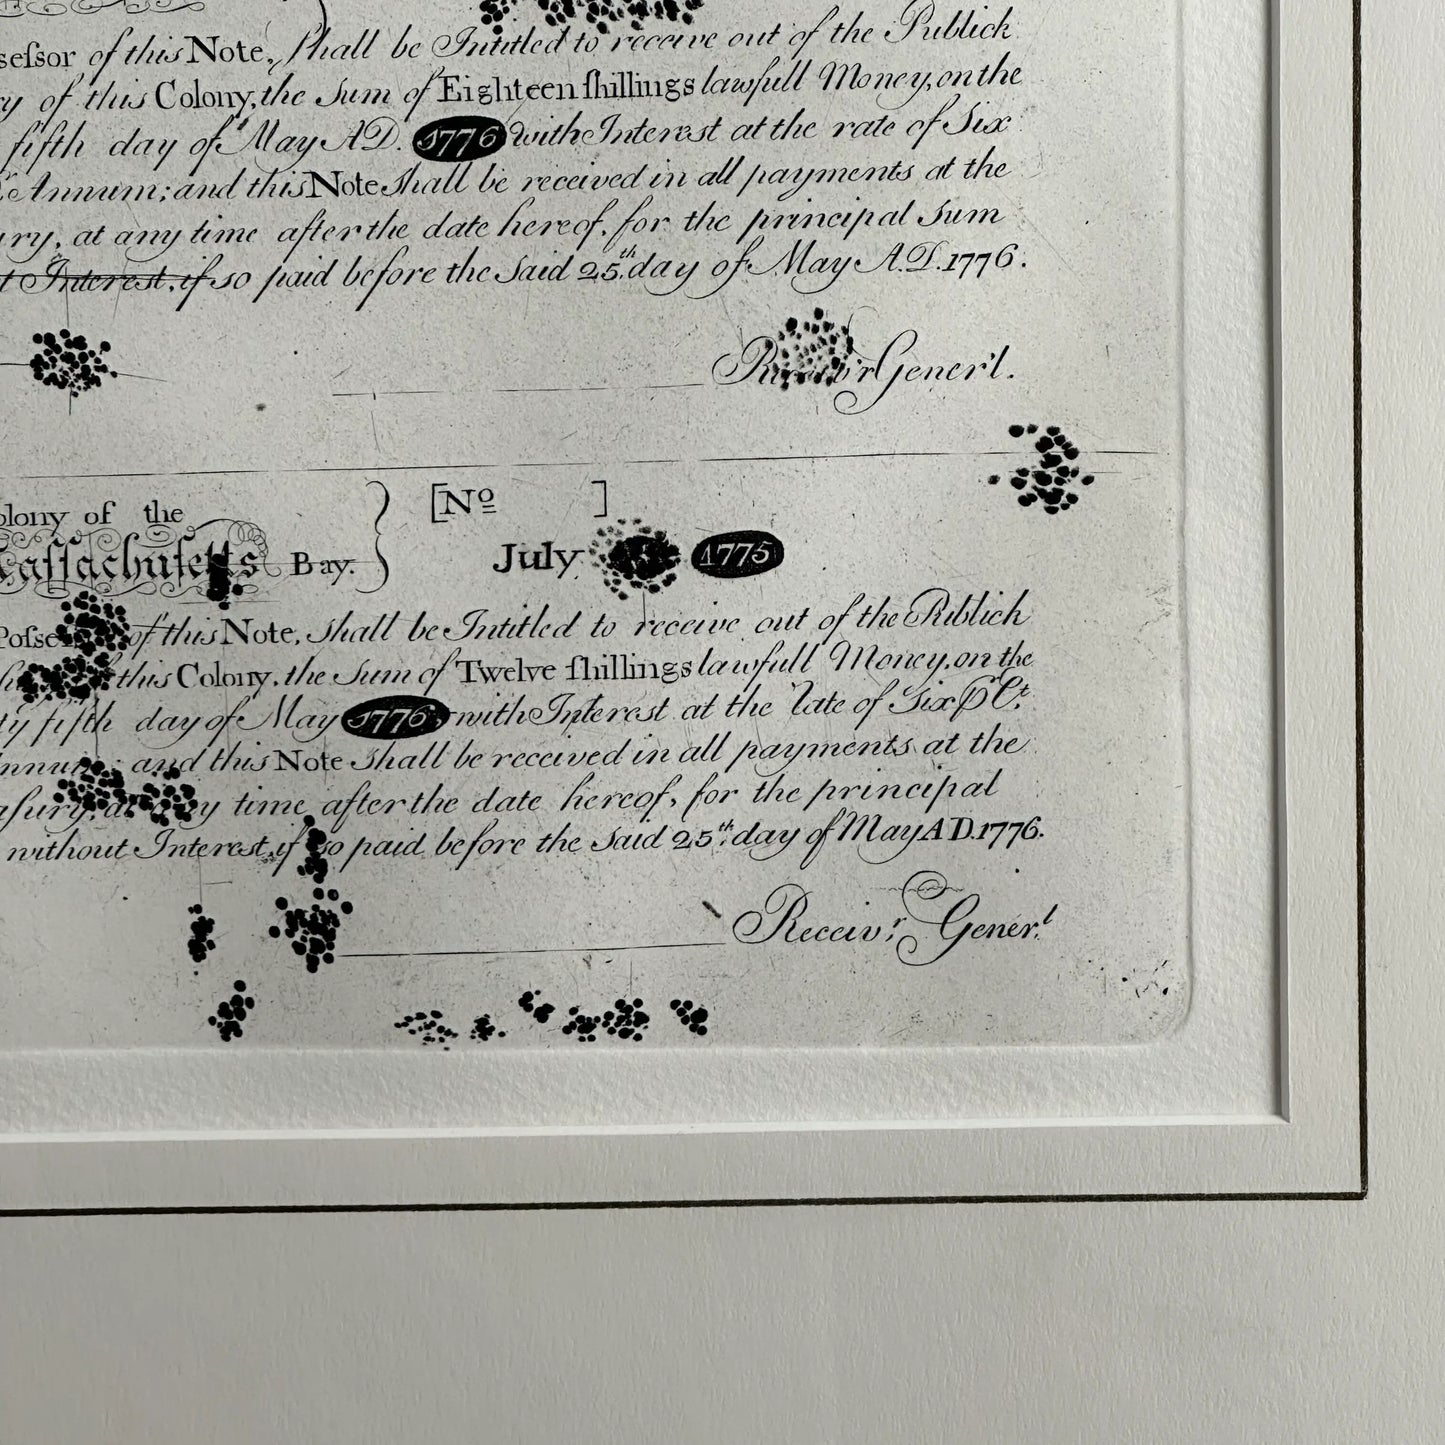 seſsor of this Note, ſhall be Intitled to receive out of the Publick
ry of this Colony, the Sum of Eighteen ſhillings lawfull Money, on the
fifth day of May AD. 1776 with Interest at the rate of Six
Annum; and this Note Shall be received in all payments at the
ury, at any time after the date hereof, for the principal Sum
t Interest, if so paid before the Said 25.th day of May A.D. 1776.
Receiv'r Gener'l.
olony of the } [No ]
aſſachuſetts Bay. July 1775
Poſse of this Note, Shall be Intitled to receive out of the Publick
this Colony, the Sum of Twelve ſhillings lawfull Money, on the
ty fifth day of May 1776 with Interest at the Rate of Six P Ct.
and this Note Shall be received in all payments at the
aſury, at any time after the date hereof, for the principal
without Interest, if so paid before the Said 25th. day of May A D. 1776.
Receiv.r Gener.l